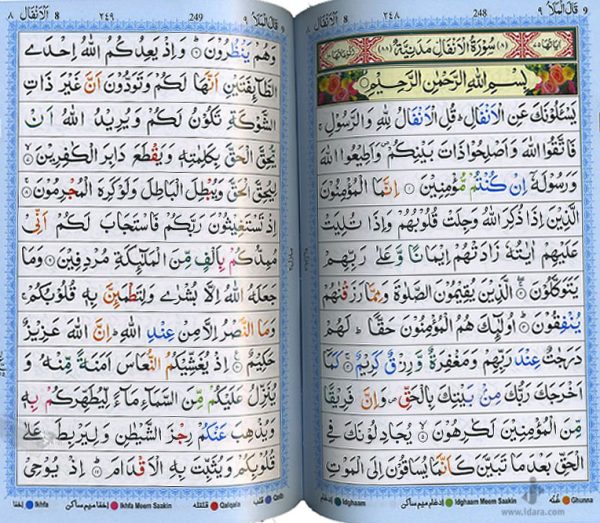 قَالَ الْمَلَاُ ٩
248
٢٤٨
اَلْاَنْفَال ٨
سُوْرَةُ الْاَنْفَالِ مَدَنِيَّةٌ
بِسْمِ اللّٰهِ الرَّحْمٰنِ الرَّحِيْمِ
يَسْـَٔلُوْنَكَ عَنِ الْاَنْفَالِ ؕ قُلِ الْاَنْفَالُ لِلّٰهِ وَالرَّسُوْلِ ۚ
فَاتَّقُوا اللّٰهَ وَاَصْلِحُوْا ذَاتَ بَيْنِكُمْ ۪ وَاَطِيْعُوا اللّٰهَ
وَرَسُوْلَهٗۤ اِنْ كُنْتُمْ مُّؤْمِنِيْنَ ۝ اِنَّمَا الْمُؤْمِنُوْنَ
الَّذِيْنَ اِذَا ذُكِرَ اللّٰهُ وَجِلَتْ قُلُوْبُهُمْ وَاِذَا تُلِيَتْ
عَلَيْهِمْ اٰيٰتُهٗ زَادَتْهُمْ اِيْمَانًا وَّعَلٰى رَبِّهِمْ
يَتَوَكَّلُوْنَ ۝ الَّذِيْنَ يُقِيْمُوْنَ الصَّلٰوةَ وَمِمَّا رَزَقْنٰهُمْ
يُنْفِقُوْنَ ۝ اُولٰٓئِكَ هُمُ الْمُؤْمِنُوْنَ حَقًّا ؕ لَهُمْ
دَرَجٰتٌ عِنْدَ رَبِّهِمْ وَمَغْفِرَةٌ وَّرِزْقٌ كَرِيْمٌ ۝ كَمَاۤ
اَخْرَجَكَ رَبُّكَ مِنْۢ بَيْتِكَ بِالْحَقِّ ۪ وَاِنَّ فَرِيْقًا
مِّنَ الْمُؤْمِنِيْنَ لَكٰرِهُوْنَ ۝ يُجَادِلُوْنَكَ فِي
الْحَقِّ بَعْدَ مَا تَبَيَّنَ كَاَنَّمَا يُسَاقُوْنَ اِلَى الْمَوْتِ
Ghunna غنّه
Idghaam Meem Saakin ادغام میم ساکن
Idghaam ادغام
قَالَ الْمَلَاُ ٩
249
٢٤٩
اَلْاَنْفَال ٨
وَهُمْ يَنْظُرُوْنَ ۝ وَاِذْ يَعِدُكُمُ اللّٰهُ اِحْدَى
الطَّآئِفَتَيْنِ اَنَّهَا لَكُمْ وَتَوَدُّوْنَ اَنَّ غَيْرَ ذَاتِ
الشَّوْكَةِ تَكُوْنُ لَكُمْ وَيُرِيْدُ اللّٰهُ اَنْ
يُّحِقَّ الْحَقَّ بِكَلِمٰتِهٖ وَيَقْطَعَ دَابِرَ الْكٰفِرِيْنَ ۝
لِيُحِقَّ الْحَقَّ وَيُبْطِلَ الْبَاطِلَ وَلَوْ كَرِهَ الْمُجْرِمُوْنَ ۝
اِذْ تَسْتَغِيْثُوْنَ رَبَّكُمْ فَاسْتَجَابَ لَكُمْ اَنِّيْ
مُمِدُّكُمْ بِاَلْفٍ مِّنَ الْمَلٰٓئِكَةِ مُرْدِفِيْنَ ۝ وَمَا
جَعَلَهُ اللّٰهُ اِلَّا بُشْرٰى وَلِتَطْمَئِنَّ بِهٖ قُلُوْبُكُمْ ۚ
وَمَا النَّصْرُ اِلَّا مِنْ عِنْدِ اللّٰهِ ؕ اِنَّ اللّٰهَ عَزِيْزٌ
حَكِيْمٌ ۝ اِذْ يُغَشِّيْكُمُ النُّعَاسَ اَمَنَةً مِّنْهُ وَ
يُنَزِّلُ عَلَيْكُمْ مِّنَ السَّمَآءِ مَآءً لِّيُطَهِّرَكُمْ بِهٖ
وَيُذْهِبَ عَنْكُمْ رِجْزَ الشَّيْطٰنِ وَلِيَرْبِطَ عَلٰى
قُلُوْبِكُمْ وَيُثَبِّتَ بِهِ الْاَقْدَامَ ۝ اِذْ يُوْحِيْ
Qalb قلب
Qalqala قلقلہ
Ikhfa Meem Saakin اخفا میم ساکن
Ikhfa اخفا
www.idara.com